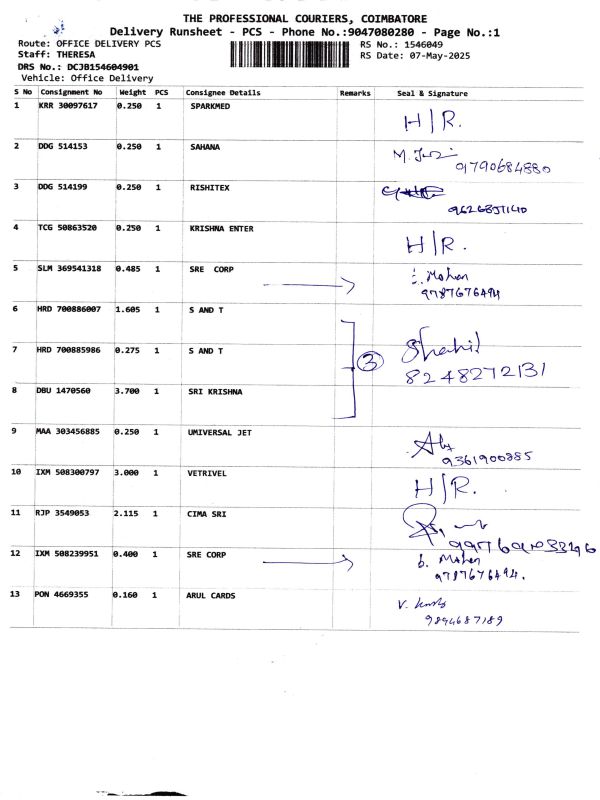 THE PROFESSIONAL COURIERS, COIMBATORE
Delivery Runsheet - PCS - Phone No.:9047080280 - Page No.:1
Route: OFFICE DELIVERY PCS RS No.: 1546049
Staff: THERESA RS Date: 07-May-2025
DRS No.: DCJB154604901
Vehicle: Office Delivery
S No Consignment No Weight PCS Consignee Details Remarks Seal & Signature
1 KRR 30097617 0.250 1 SPARKMED H/R.
2 DDG 514153 0.250 1 SAHANA M.
9790684880
3 DDG 514199 0.250 1 RISHITEX
4 TCG 50863520 0.250 1 KRISHNA ENTER H/R.
5 SLM 369541318 0.485 1 SRE CORP Mohan
9787676494
6 HRD 700886007 1.605 1 S AND T
7 HRD 700885986 0.275 1 S AND T 3 Shahil
8248272131
8 DBU 1470560 3.700 1 SRI KRISHNA
9 MAA 303456885 0.250 1 UMIVERSAL JET
9361900885
10 IXM 508300797 3.000 1 VETRIVEL H/R.
11 RJP 3549053 2.115 1 CIMA SRI
12 IXM 508239951 0.400 1 SRE CORP b. Mohan
9787676494.
13 PON 4669355 0.160 1 ARUL CARDS V.
9894687189